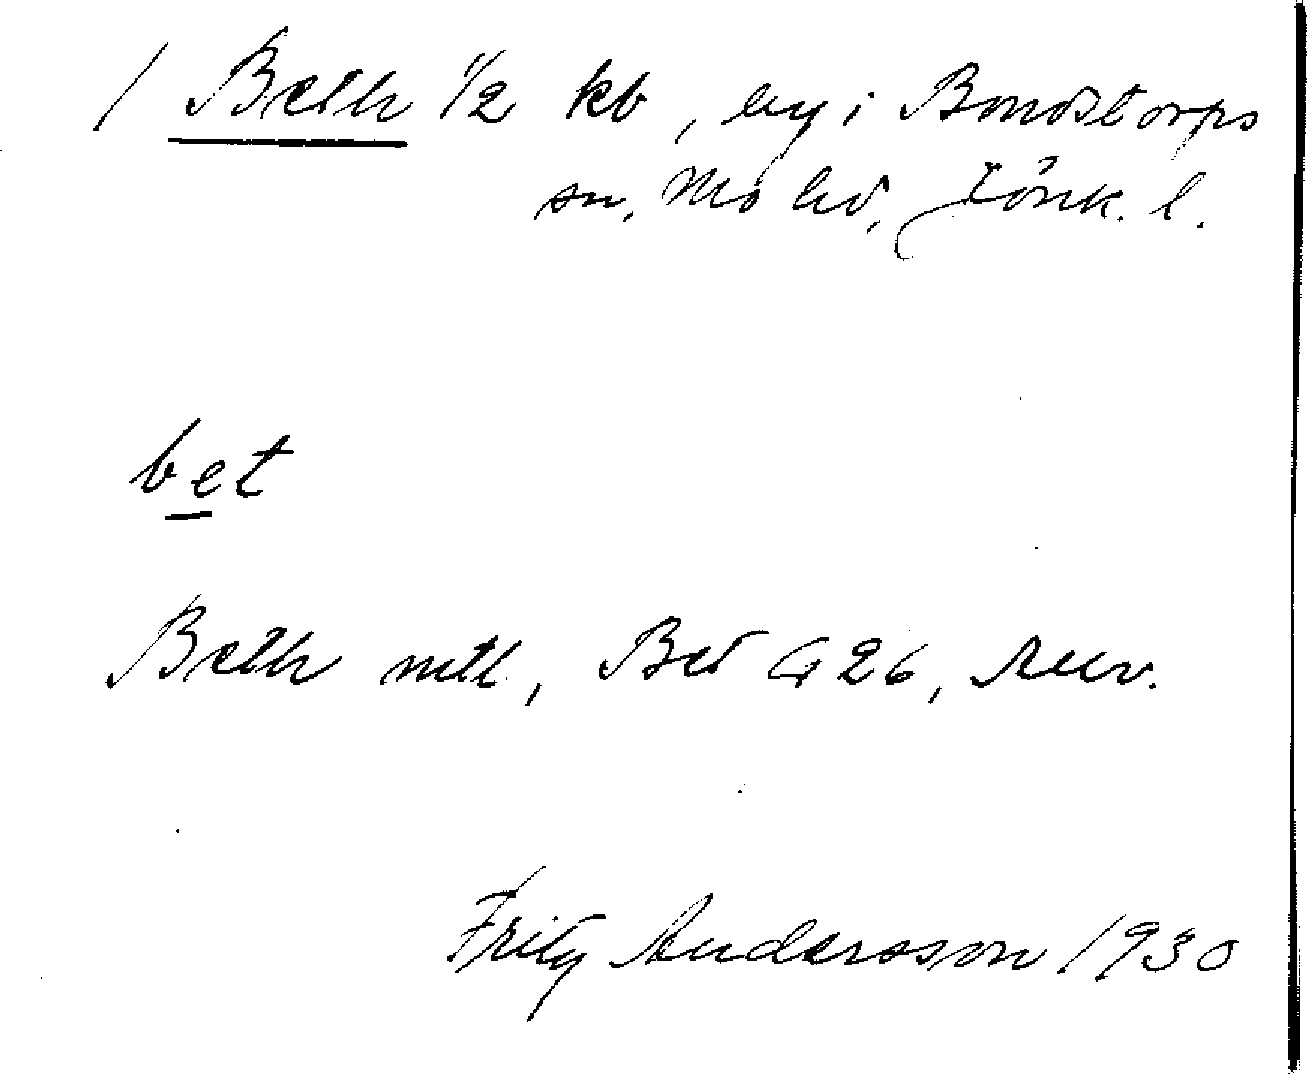 / Beth 1/2 kb, by i Bondstorps
sn, Mo hd, Jönk. l.
bet
Beth mtl, Bet G 26,
Fritz Andersson 1930